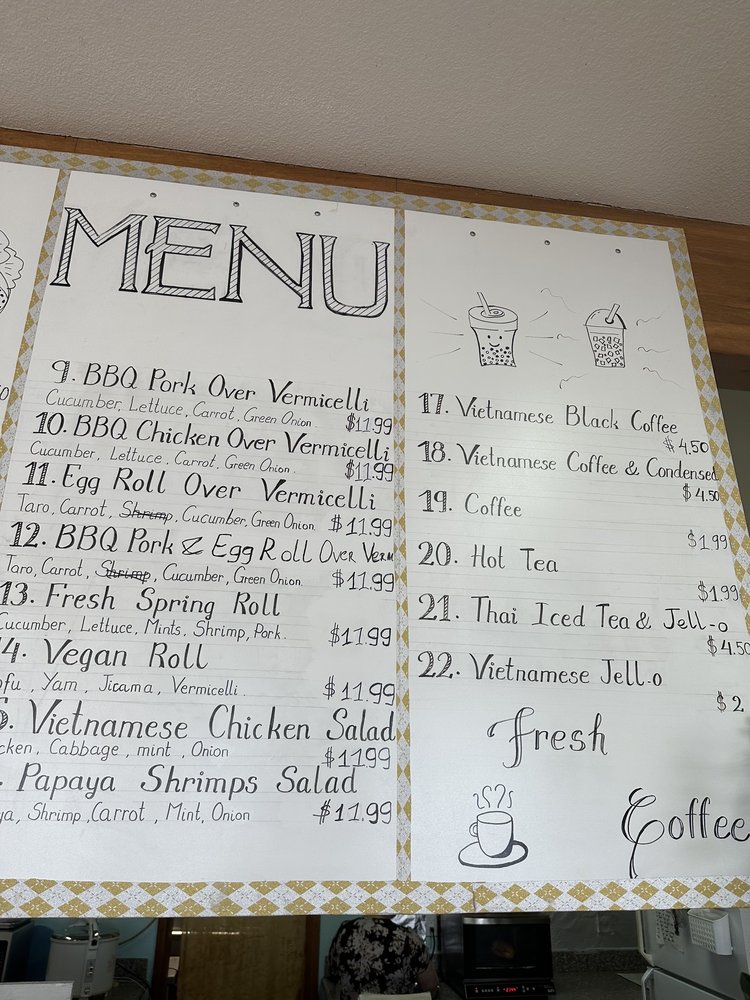 MENU
9. BBQ Pork Over Vermicelli
Cucumber, Lettuce, Carrot, Green Onion $11.99
10. BBQ Chicken Over Vermicelli
Cucumber, Lettuce, Carrot, Green Onion. $11.99
11. Egg Roll Over Vermicelli
Taro, Carrot, Shrimp, Cucumber, Green Onion. $11.99
12. BBQ Pork & Egg Roll Over Verm
Taro, Carrot, Shrimp, Cucumber, Green Onion. $11.99
13. Fresh Spring Roll
Cucumber, Lettuce, Mints, Shrimp, Pork. $11.99
4. Vegan Roll
ofu, Yam, Jicama, Vermicelli. $11.99
. Vietnamese Chicken Salad
cken, Cabbage, mint, Onion $11.99
. Papaya Shrimps Salad
ya, Shrimp, Carrot, Mint, Onion $11.99
17. Vietnamese Black Coffee
$4.50
18. Vietnamese Coffee & Condensed
$4.50
19. Coffee
$1.99
20. Hot Tea
$1.99
21. Thai Iced Tea & Jell-o
$4.50
22. Vietnamese Jell.o
$2
Fresh
Coffee